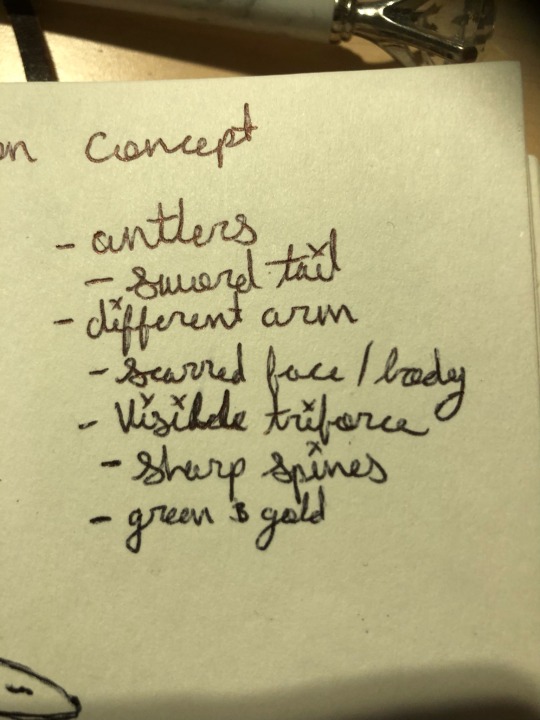 on Concept
- antlers
- sword tail
- different arm
- scarred face / body
- Visible triforce
- sharp spines
- green & gold